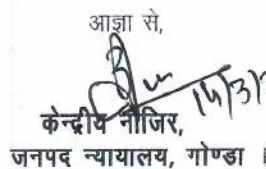 आज्ञा से,
केन्द्रीय नाजिर,
जनपद न्यायालय, गोण्डा ।